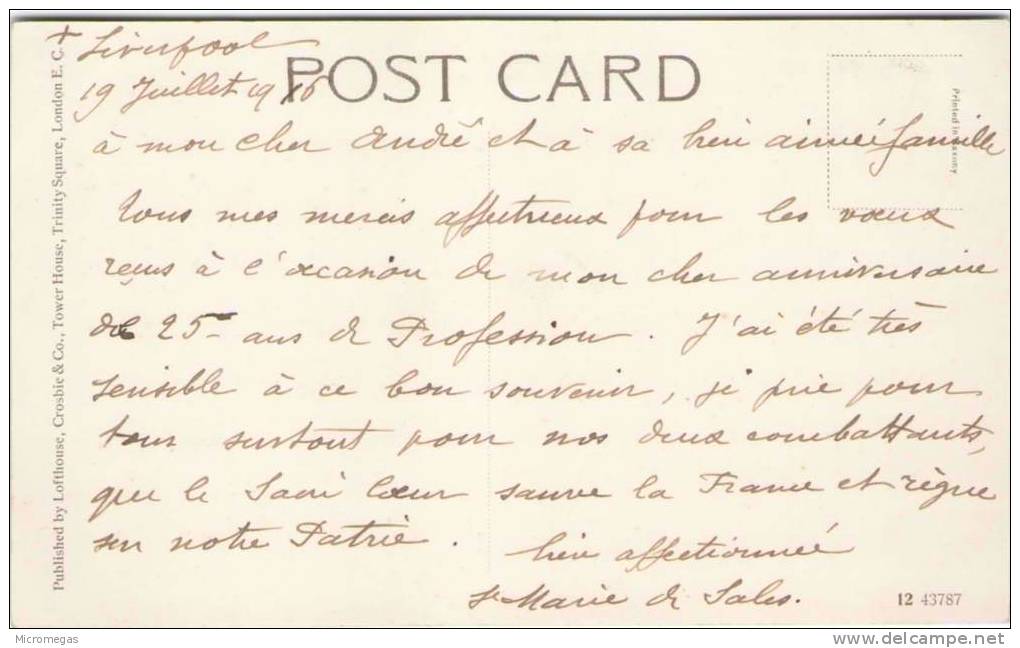 +
Liverpool
19 Juillet 1916
POST CARD
à mon cher André et à sa bien aimée famille
Tous mes mercis affectueux pour les vœux
reçus à l'occasion de mon cher anniversaire
de 25 ans de Profession. J'ai été très
sensible à ce bon souvenir, je prie pour
tous surtout pour nos deux combattants,
que le Sacré Cœur sauve la France et règne
sur notre Patrie.
bien affectionnée
Sr Marie de Sales.
Published by Lofthouse, Crosbie & Co., Tower House, Trinity Square, London E. C.
Printed in Saxony
12 43787
Micromegas
delcampe.net